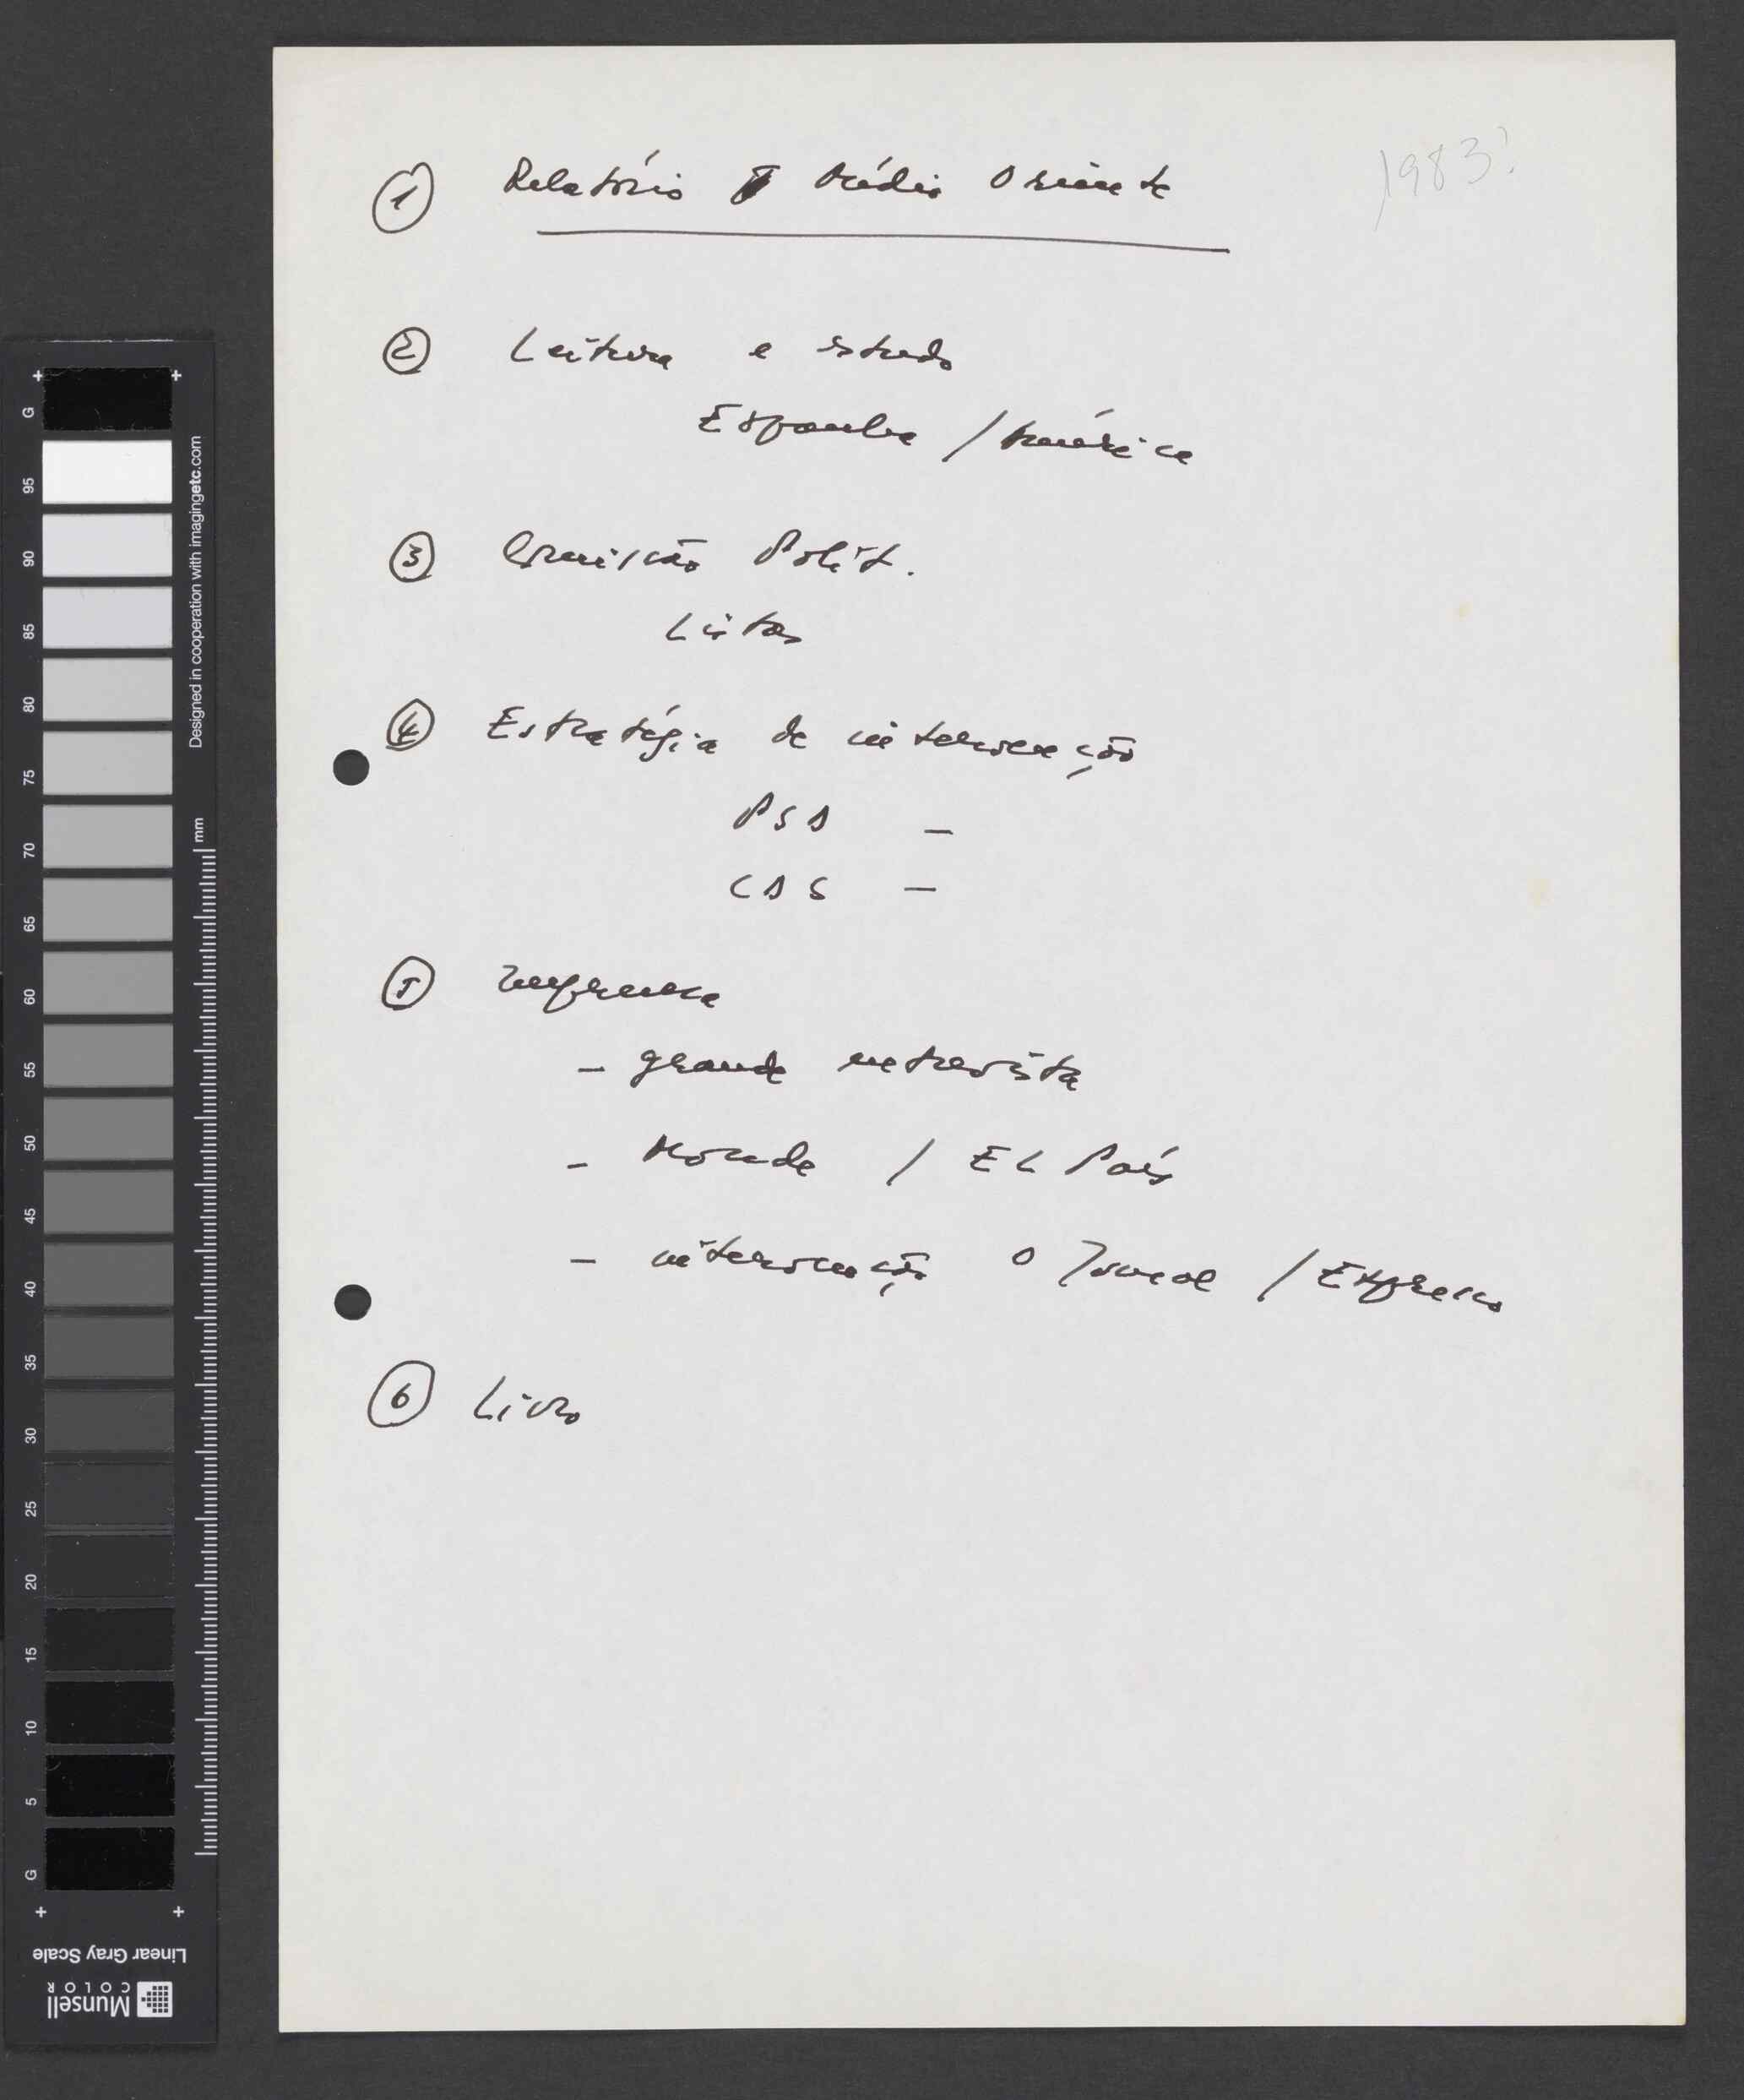 1983?
① Relatório Médio Oriente
② Leitura e estudo
Espanha / América
③ Comissão Polít.
Listas
④ Estratégia de intervenção
PSD –
CDS –
⑤ Imprensa
– grande entrevista
– Monde / EL País
– intervenção O Jornal / Expresso
⑥ Livro
G
95
90
85
80
75
70
65
60
55
50
45
40
35
30
25
20
15
10
5
G
Designed in cooperation with imagingetc.com
mm
Linear Gray Scale
Munsell
COLOR